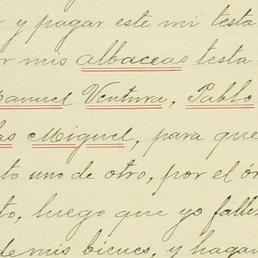 y pagar este mi testa
mis albaceas testa
Manuel Ventura, Pablo
Miguel, para que
to uno de otro, por el ór
to, luego que yo falle
de mis bienes, y hagan